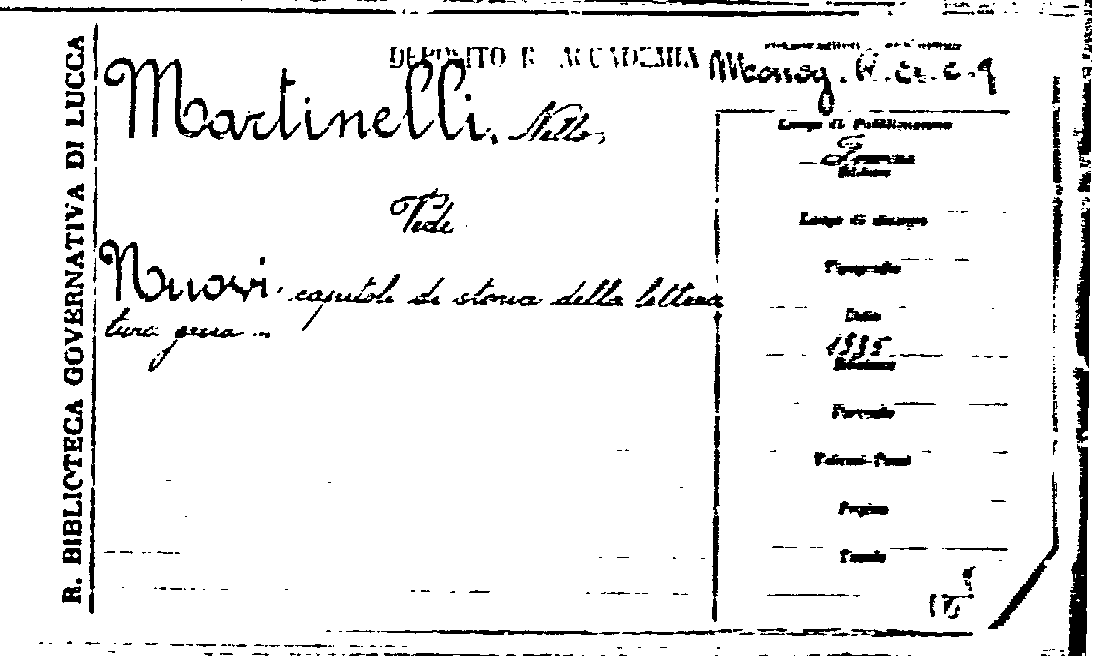 R. BIBLIOTECA GOVERNATIVA DI LUCCA
DEPOSITO R. ACCADEMIA
Martinelli, Nello,
Vedi
Nuovi capitoli di storia della lettera
tura
Luogo di Pubblicazione
Firenze
Edizione
Luogo di stampa
Tipografia
Data
Formato
Volumi-Tomi
Pagine
Tavole